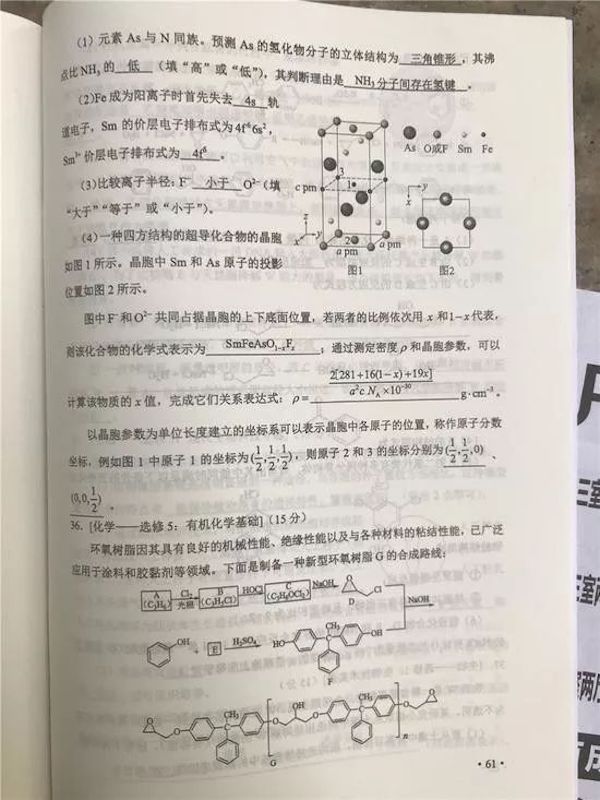 (1) 元素 As 与 N 同族。预测 As 的氢化物分子的立体结构为 三角锥形 ,其沸
点比NH₃的 低 (填“高”或“低”),其判断理由是 NH₃分子间存在氢键 。
(2)Fe成为阳离子时首先失去 4s 轨
道电子,Sm 的价层电子排布式为4f⁶6s²,
Sm³⁺价层电子排布式为 4f⁵ 。
(3)比较离子半径:F⁻ 小于 O²⁻(填
“大于”“等于”或“小于”)。
(4)一种四方结构的超导化合物的晶胞
如图1所示。晶胞中 Sm 和 As 原子的投影
位置如图2所示。
As O或F Sm Fe
c pm
3
1
2
z
x
y
a pm
a pm
图1
y
x
图2
图中F⁻和O²⁻共同占据晶胞的上下底面位置,若两者的比例依次用 x 和1−x代表,
则该化合物的化学式表示为 SmFeAsO₁₋ₓFₓ ;通过测定密度ρ和晶胞参数,可以
计算该物质的 x 值,完成它们关系表达式:ρ= 2[281+16(1−x)+19x] / a²c N_A×10⁻³⁰ g·cm⁻³。
以晶胞参数为单位长度建立的坐标系可以表示晶胞中各原子的位置,称作原子分数
坐标,例如图1中原子1的坐标为(1/2,1/2,1/2),则原子2和3的坐标分别为(1/2,1/2,0) 、
(0,0,1/2) 。
36. [化学——选修5:有机化学基础](15分)
环氧树脂因其具有良好的机械性能、绝缘性能以及与各种材料的粘结性能,已广泛
应用于涂料和胶黏剂等领域。下面是制备一种新型环氧树脂G的合成路线:
A (C₃H₆) Cl₂ 光照 B (C₃H₅Cl) HOCl C (C₃H₆OCl₂) NaOH O Cl D
NaOH
OH + E H₂SO₄ HO CH₃ OH F
O O CH₃ O OH O CH₃ O O n
G
·61·